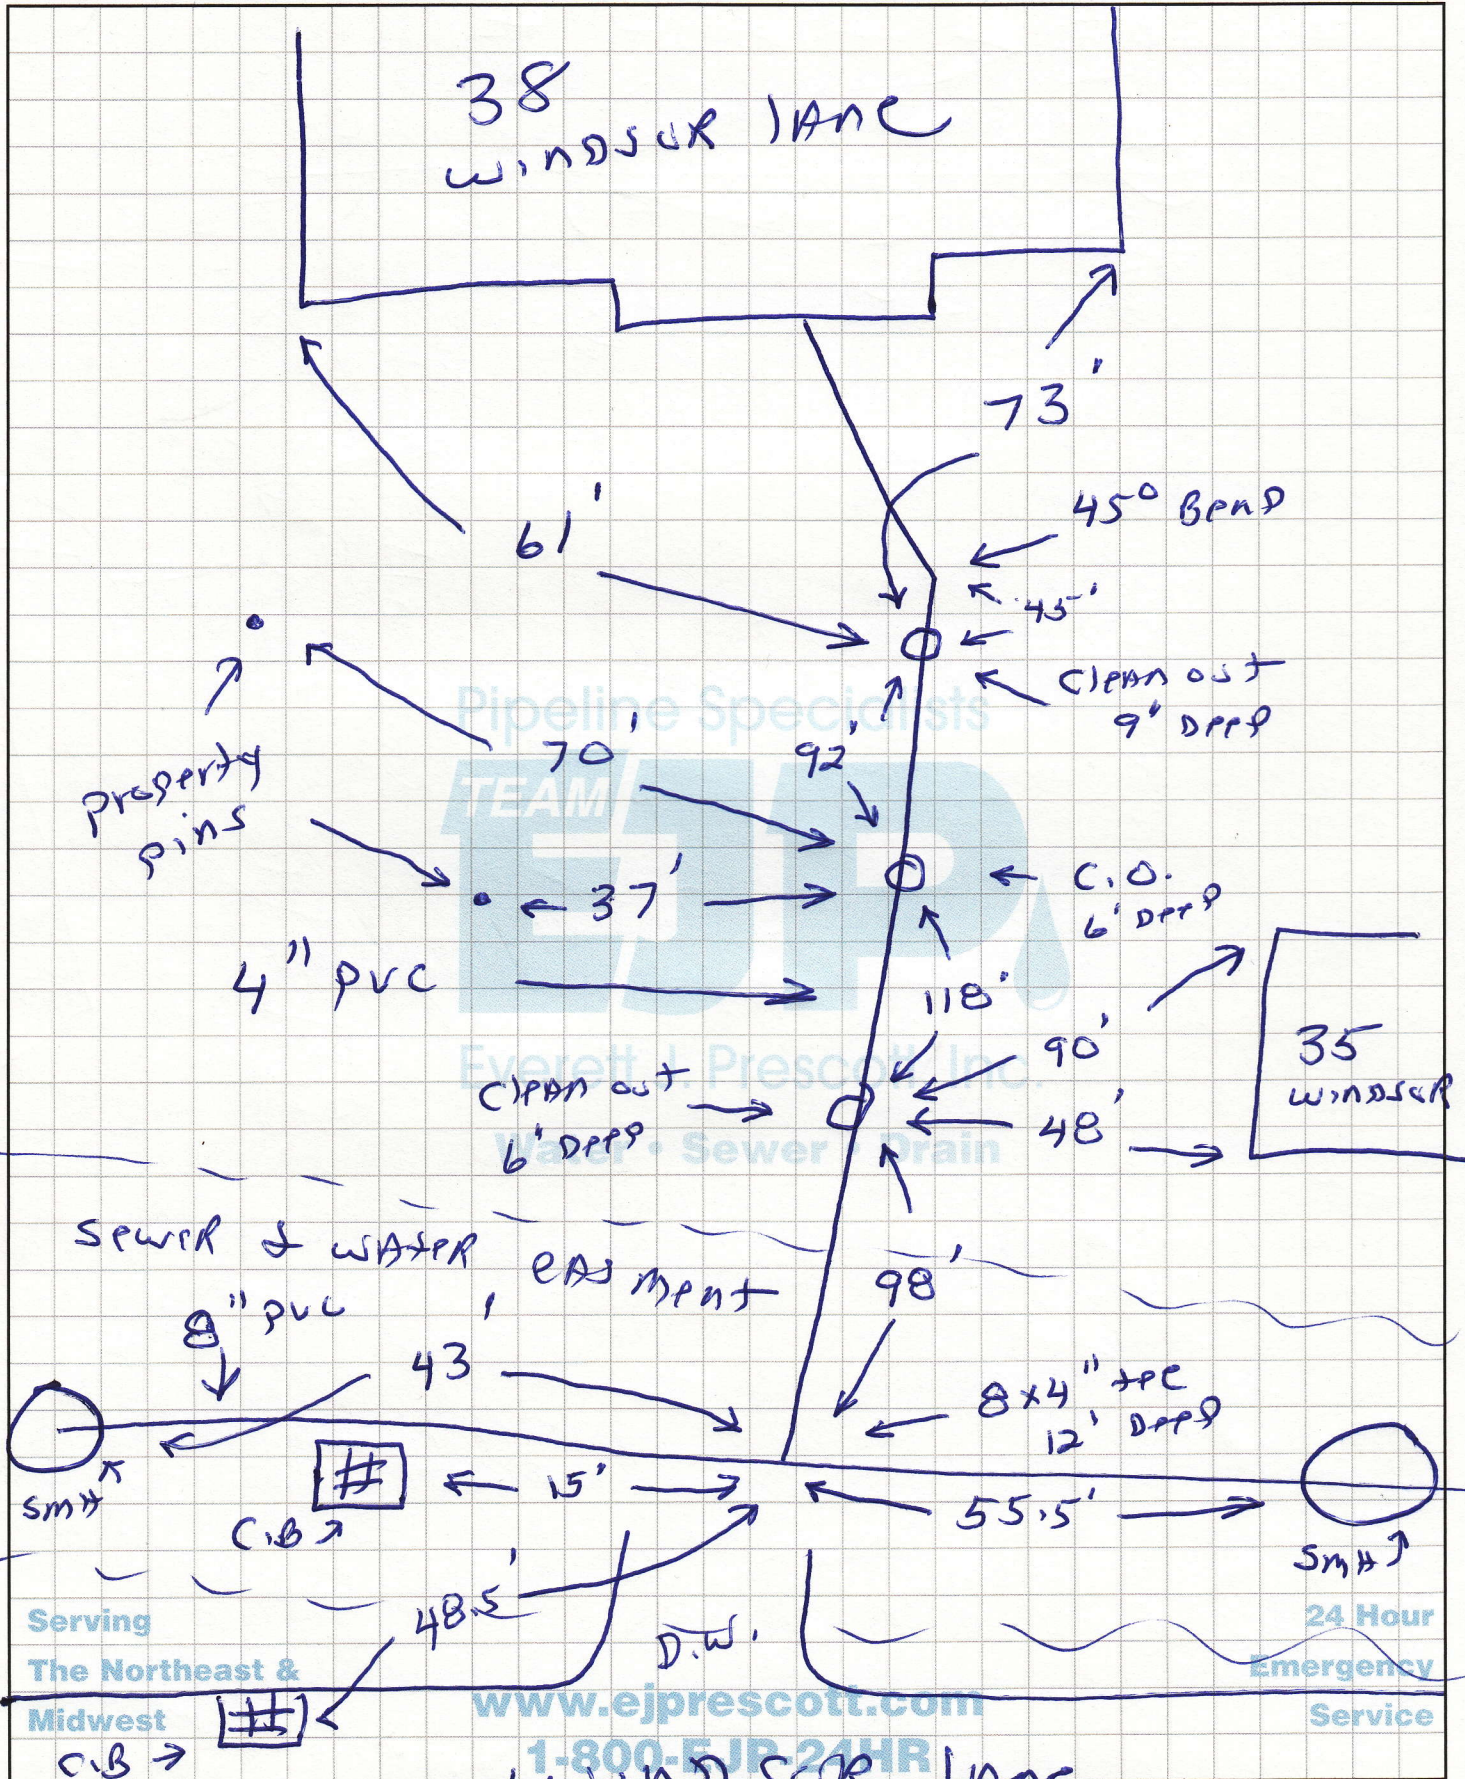 38
WINDSOR LANE
73'
45° BenD
61'
45'
Clean out
9' Deep
Pipeline Specialists
70'
92'
property
pins
TEAM
EJP
37'
C.O.
6' Deep
4" PVC
118'
90'
35
WINDSOR
Everett J. Prescott, Inc.
Clean out
6' Deep
48'
Water • Sewer • Drain
Sewer & Water easment
98'
8" PVC
43'
8x4" tee
12' Deep
SMH
15'
55.5'
C.B
SMH
48.5'
D.W.
Serving
The Northeast &
Midwest
24 Hour
Emergency
Service
www.ejprescott.com
1-800-EJP-24HR
C.B
WINDSOR lane